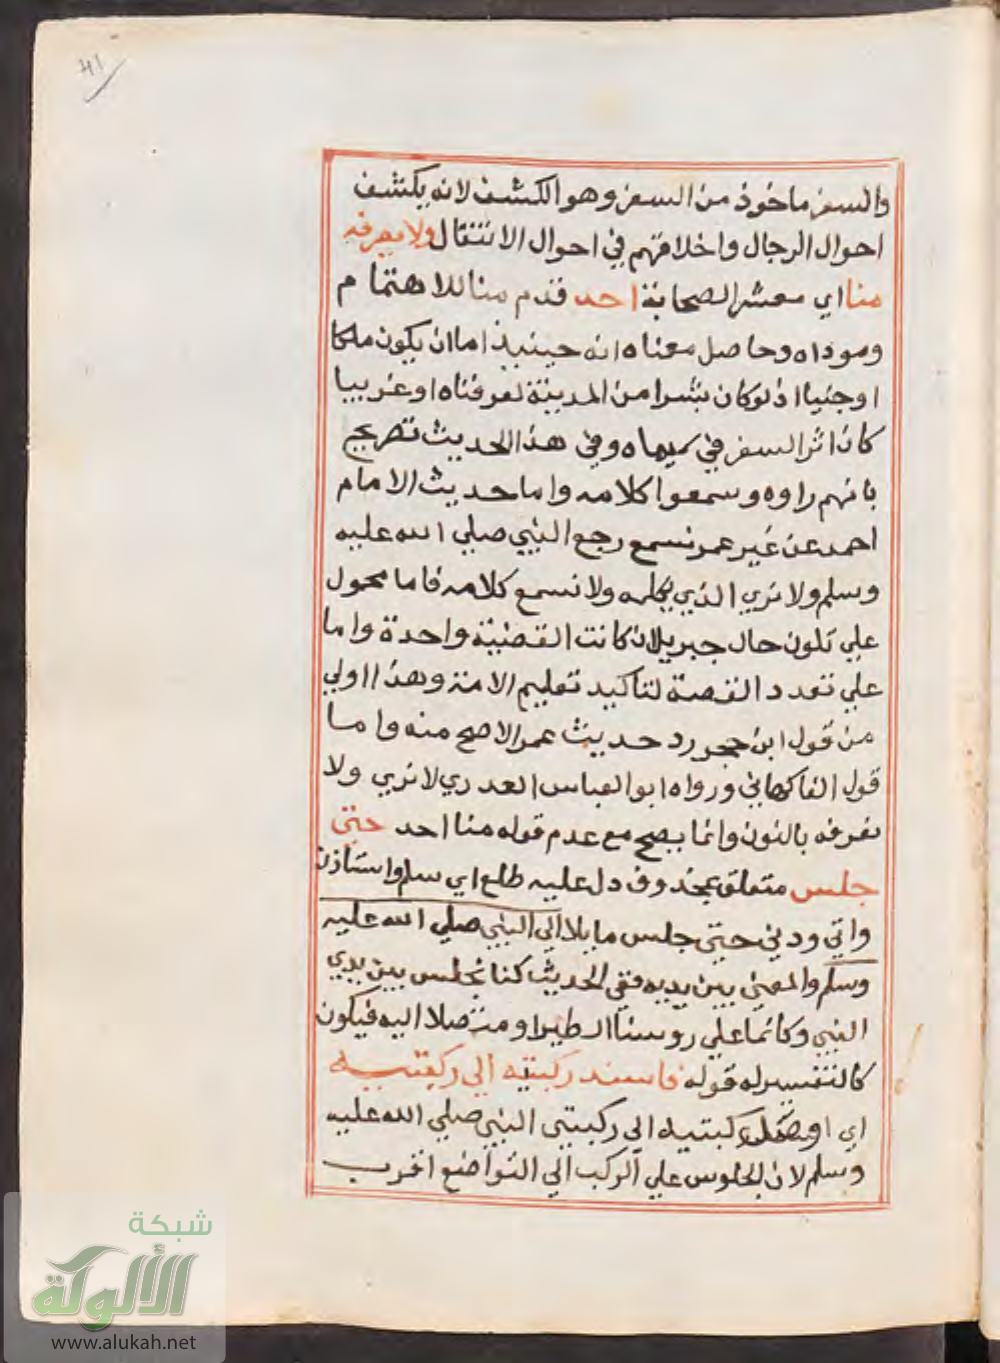 41
والسفر ماخوذ من السفر وهو الكشف لانه يكشف
احوال الرجال واخلاقهم في احوال الانتقال ولا يعرفه
منا اي معشر الصحابة احد قدم منا للاهتمام
وموداه وحاصل معناه انه حينيذ اما ان يكون ملكا
او جنيا اذ لو كان بشرا من المدينة لعرفناه او غريبا
كان اثر السفر في سيماه وفي هذا الحديث تصريح
بانهم راوه وسمعوا كلامه واما حديث الامام
احمد عن غير عمر نسمع رجع النبي صلي الله عليه
وسلم ولا نري الذي يكلمه ولا نسمع كلامه فاما محمول
علي تلون حال جبريل ان كانت القضية واحدة واما
علي تعدد القصة لتاكيد تعليم الامة وهذا اولي
من قول ابن حجر رد حديث عمر الاصح منه واما
قول الفاكهاني ورواه ابو العباس العدري لا نري ولا
نعرفه بالنون وانما يصح مع عدم قوله منا احد حتي
جلس متعلق بمحذوف دل عليه طلع اي سلم واستاذن
واتي ودني حتي جلس مايلا الي النبي صلي الله عليه
وسلم والمعني بين يديه ففي الحديث كنا نجلس بين يدي
النبي وكانما علي روسنا الطير او متصلا اليه فيكون
كالتفسير له قوله فاسند ركبتيه الي ركبتيه
اي اوصل ركبتيه الي ركبتي النبي صلي الله عليه
وسلم لان الجلوس علي الركب الي التواضع اقرب
شبكة
الألوكة
www.alukah.net